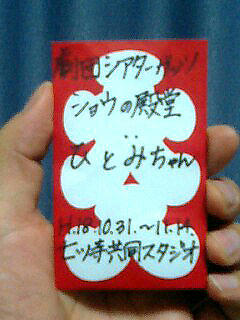 劇団シアター・ガッツ
ショウの殿堂
ひとみちゃん
H.18.10.31.～11.14.
七ツ寺共同スタジオ